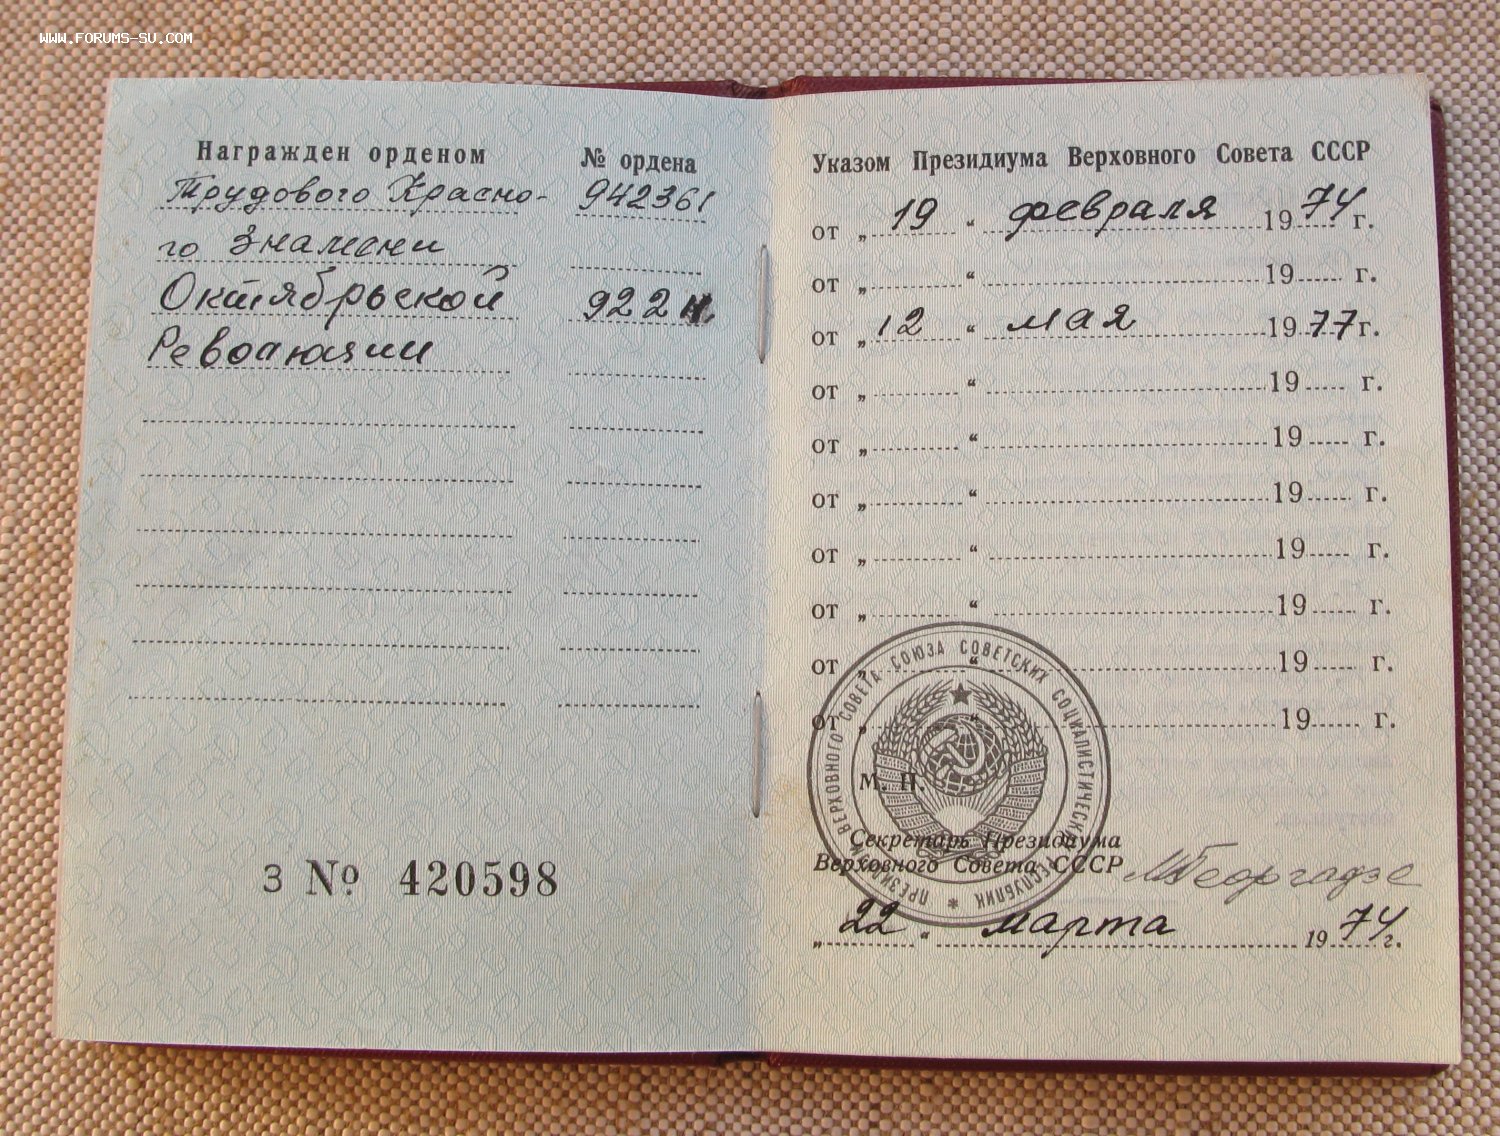 WWW.FORUMS-SU.COM
Награжден орденом № ордена
Трудового Красно- 942361
го Знамени
Октябрьской 922
Революции
З № 420598
Указом Президиума Верховного Совета СССР
от „ 19 “ февраля 1974 г.
от „ “ 19 г.
от „ 12 “ мая 1977 г.
от „ “ 19 г.
от „ “ 19 г.
от „ “ 19 г.
от „ “ 19 г.
от „ “ 19 г.
от „ “ 19 г.
от „ “ 19 г.
ПРЕЗИДИУМ ВЕРХОВНОГО СОВЕТА СОЮЗА СОВЕТСКИХ СОЦИАЛИСТИЧЕСКИХ РЕСПУБЛИК
М. П.
Секретарь Президиума
Верховного Совета СССР МГеоргадзе
„ 22 “ марта 1974 г.